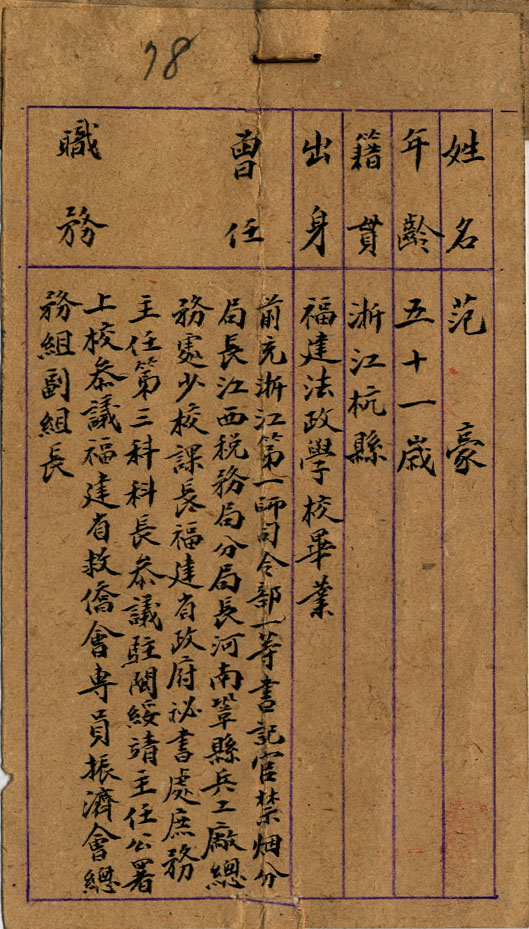 78
姓名 范豪
年齡 五十一歲
籍貫 浙江杭縣
出身 福建法政學校畢業
曾任職務
前充浙江第一師司令部一等書記官禁烟分
局長江西稅務局分局長河南鞏縣兵工廠總
務處少校課長福建省政府祕書處庶務
主任第三科科長參議駐閩綏靖主任公署
上校參議福建省救僑會專員振濟會總
務組副組長